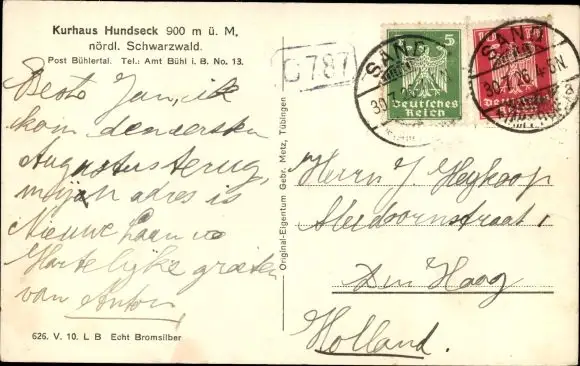 Kurhaus Hundseck 900 m ü. M,
nördl. Schwarzwald.
Post Bühlertal. Tel.: Amt Bühl i. B. No. 13.
Beste Jan, ik
kom den eersten
Augustus terug,
mijn adres is
Nieuwe Laan 10
Hartelijke groeten
van Anton
626. V. 10. L B Echt Bromsilber
Original-Eigentum Gebr. Metz, Tübingen
C 787
5
Deutsches
Reich
10
SAND
30.7.26
SAND
30.7.26. 4-5N.
Herrn J. Heykoop
straat 1
Den Haag
Holland.